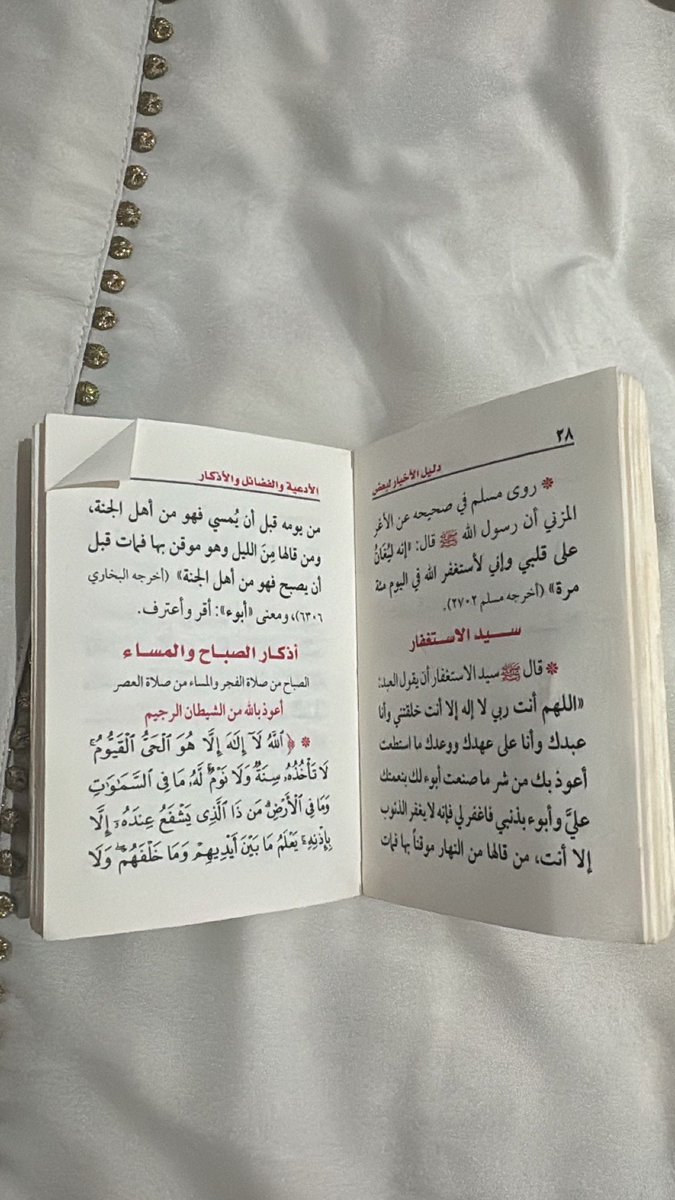 ٢٨
دليل الأخيار لبعض
* روى مسلم في صحيحه عن الأغر
المزني أن رسول الله ﷺ قال: «إنه ليُغَانُ
على قلبي وإني لأستغفر الله في اليوم مئة
مرة» (أخرجه مسلم ٢٧٠٢).
سيد الاستغفار
* قال ﷺ سيد الاستغفار أن يقول العبد:
«اللهم أنت ربي لا إله إلا أنت خلقتني وأنا
عبدك وأنا على عهدك ووعدك ما استطعت
أعوذ بك من شر ما صنعت أبوء لك بنعمتك
عليَّ وأبوء بذنبي فاغفر لي فإنه لا يغفر الذنوب
إلا أنت، من قالها من النهار موقناً بها فمات
الأدعية والفضائل والأذكار
من يومه قبل أن يُمسي فهو من أهل الجنة،
ومن قالها مِنَ الليل وهو موقن بها فمات قبل
أن يصبح فهو من أهل الجنة» (أخرجه البخاري
٦٣٠٦)، ومعنى «أبوء»: أقر وأعترف.
أذكار الصباح والمساء
الصباح من صلاة الفجر والمساء من صلاة العصر
أعوذ بالله من الشيطان الرجيم
* ﴿ٱللَّهُ لَآ إِلَٰهَ إِلَّا هُوَ ٱلْحَىُّ ٱلْقَيُّومُ ۚ
لَا تَأْخُذُهُۥ سِنَةٌ وَلَا نَوْمٌ ۚ لَّهُۥ مَا فِى ٱلسَّمَٰوَٰتِ
وَمَا فِى ٱلْأَرْضِ ۗ مَن ذَا ٱلَّذِى يَشْفَعُ عِندَهُۥٓ إِلَّا
بِإِذْنِهِۦ ۚ يَعْلَمُ مَا بَيْنَ أَيْدِيهِمْ وَمَا خَلْفَهُمْ ۖ وَلَا